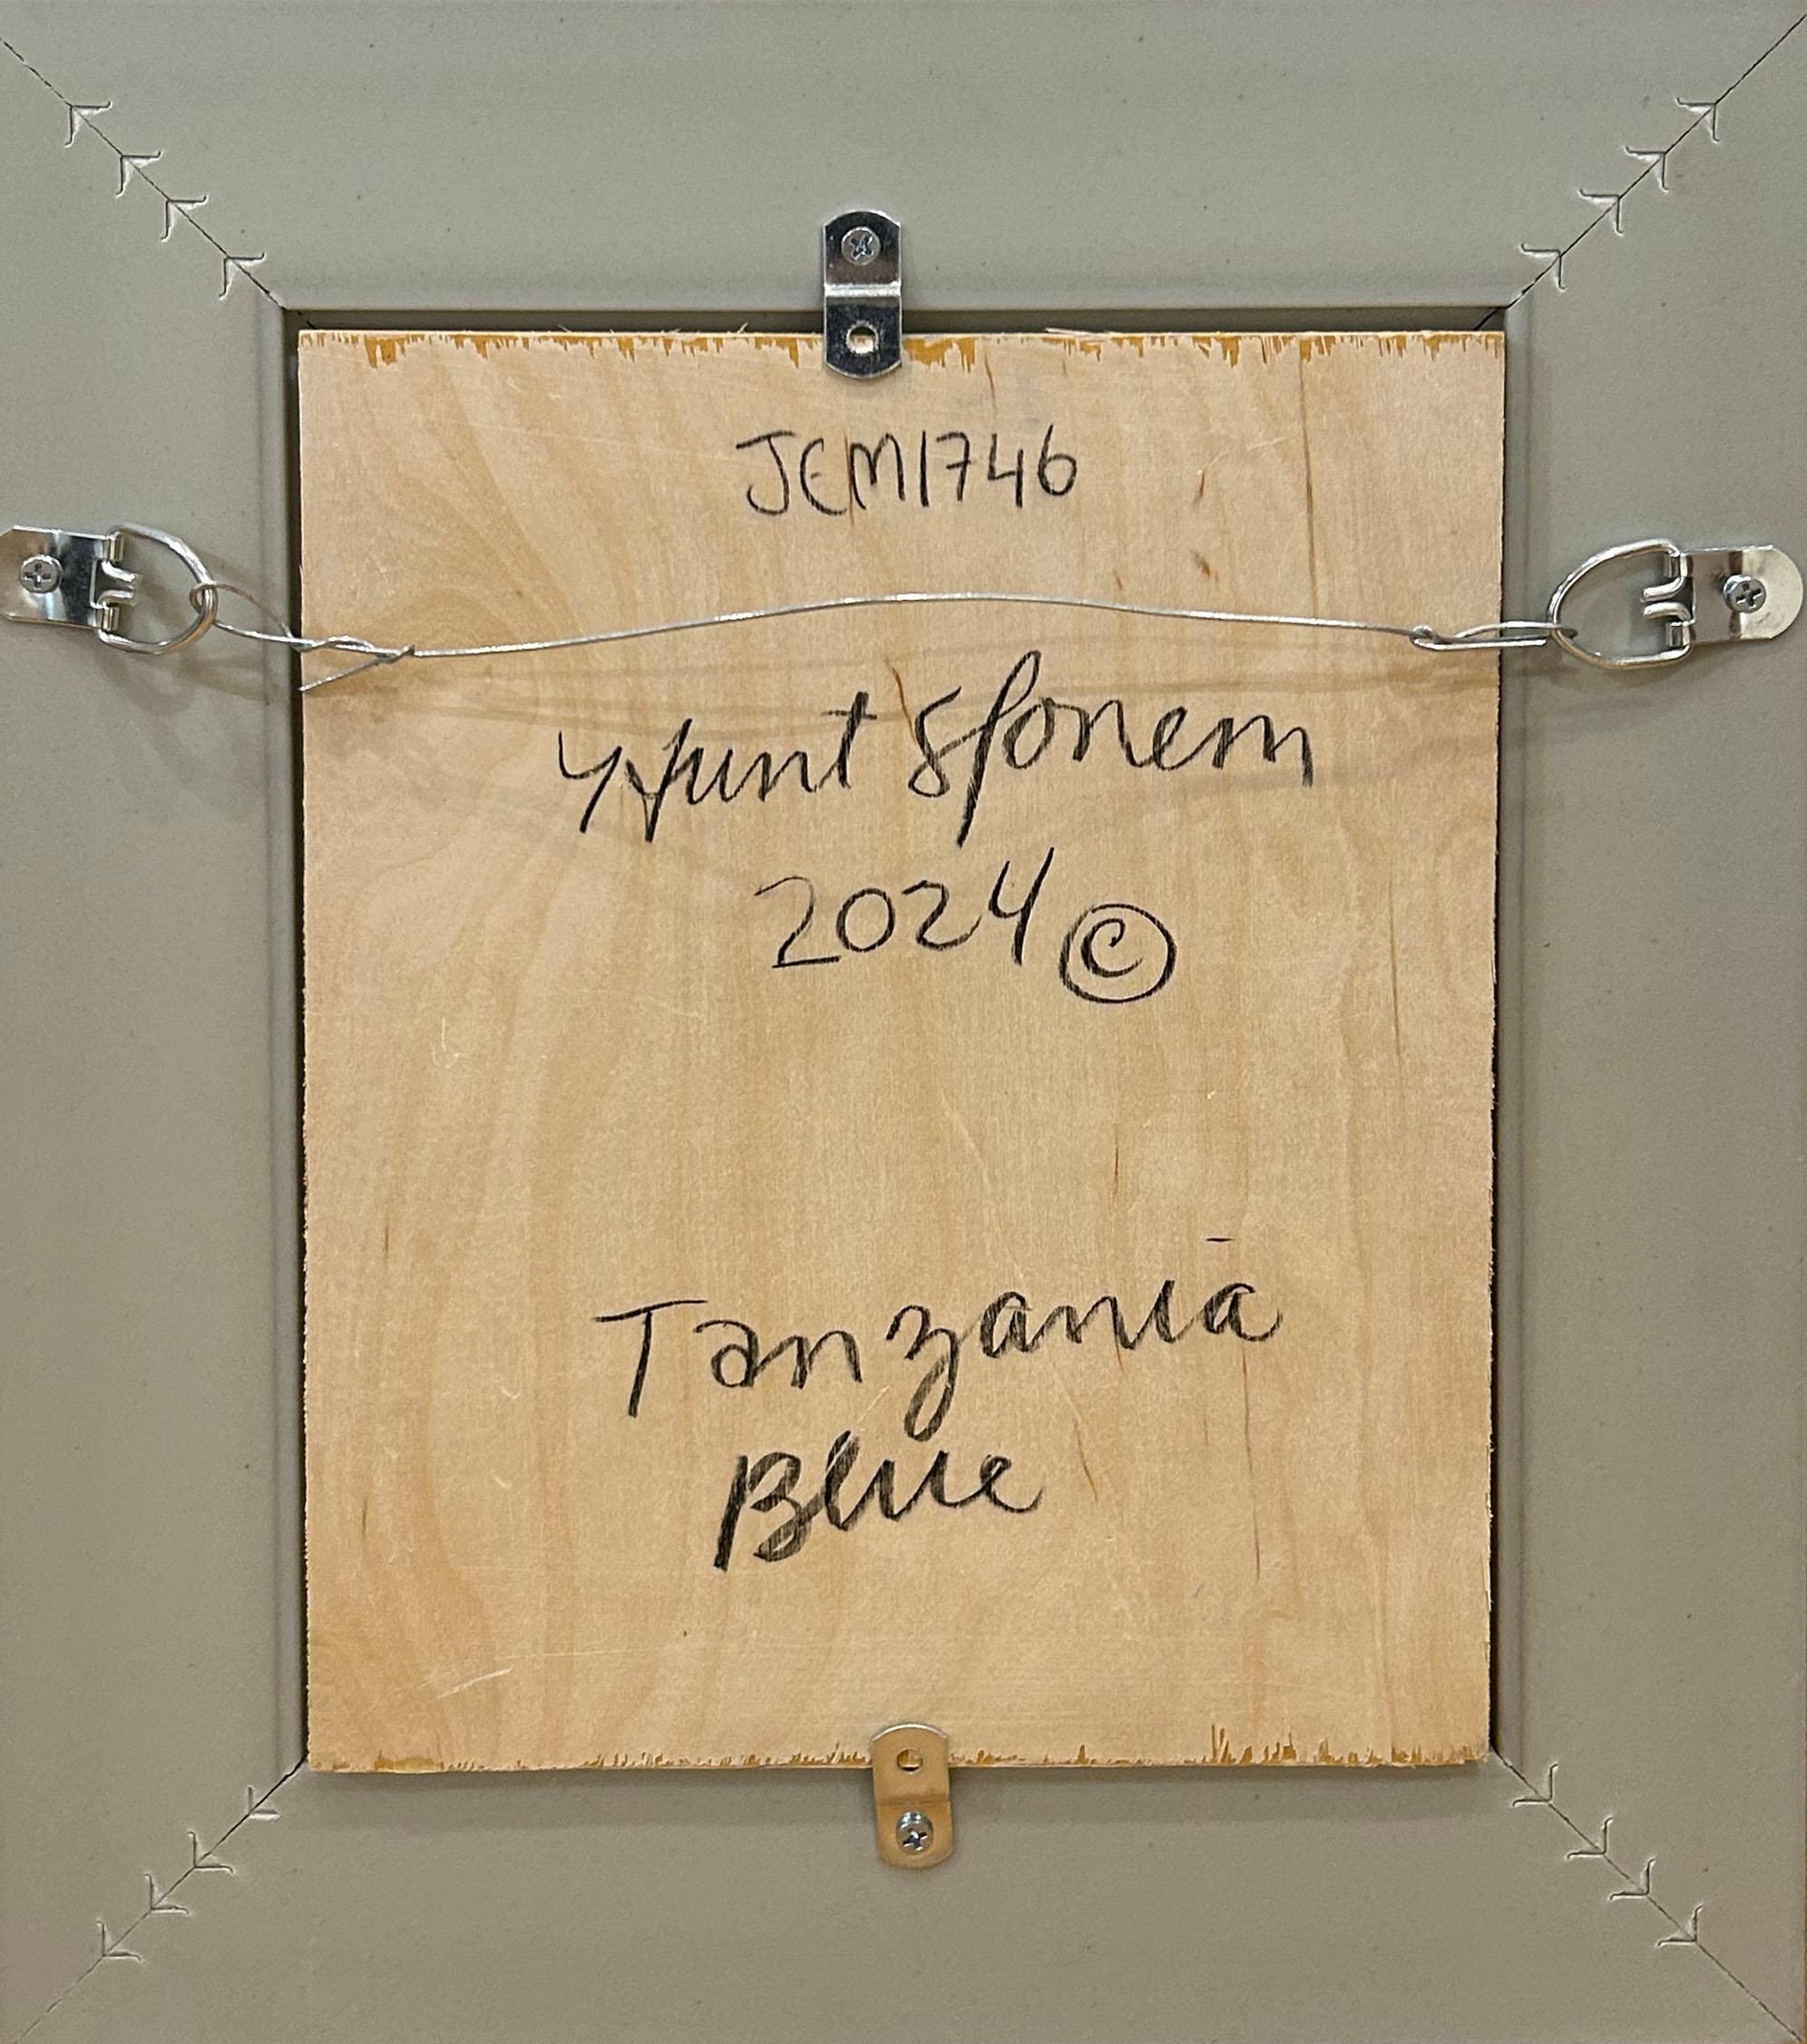 JEM1746
Hunt Slonem
2024 ©
Tanzania
Blue